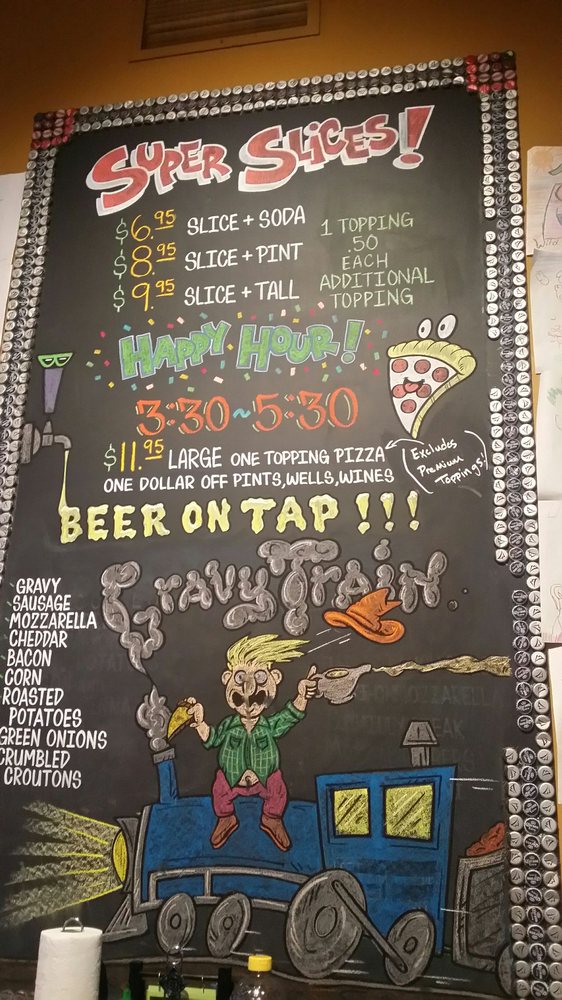 SUPER SLICES!
$6.95 SLICE + SODA
$8.95 SLICE + PINT
$9.95 SLICE + TALL
1 TOPPING
.50
EACH
ADDITIONAL
TOPPING
HAPPY HOUR!
3:30~5:30
$11.95 LARGE ONE TOPPING PIZZA
(Excludes
Premium
Toppings!)
ONE DOLLAR OFF PINTS, WELLS, WINES
BEER ON TAP!!!
GRAVY TRAIN
GRAVY
SAUSAGE
MOZZARELLA
CHEDDAR
BACON
CORN
ROASTED
POTATOES
GREEN ONIONS
CRUMBLED
CROUTONS